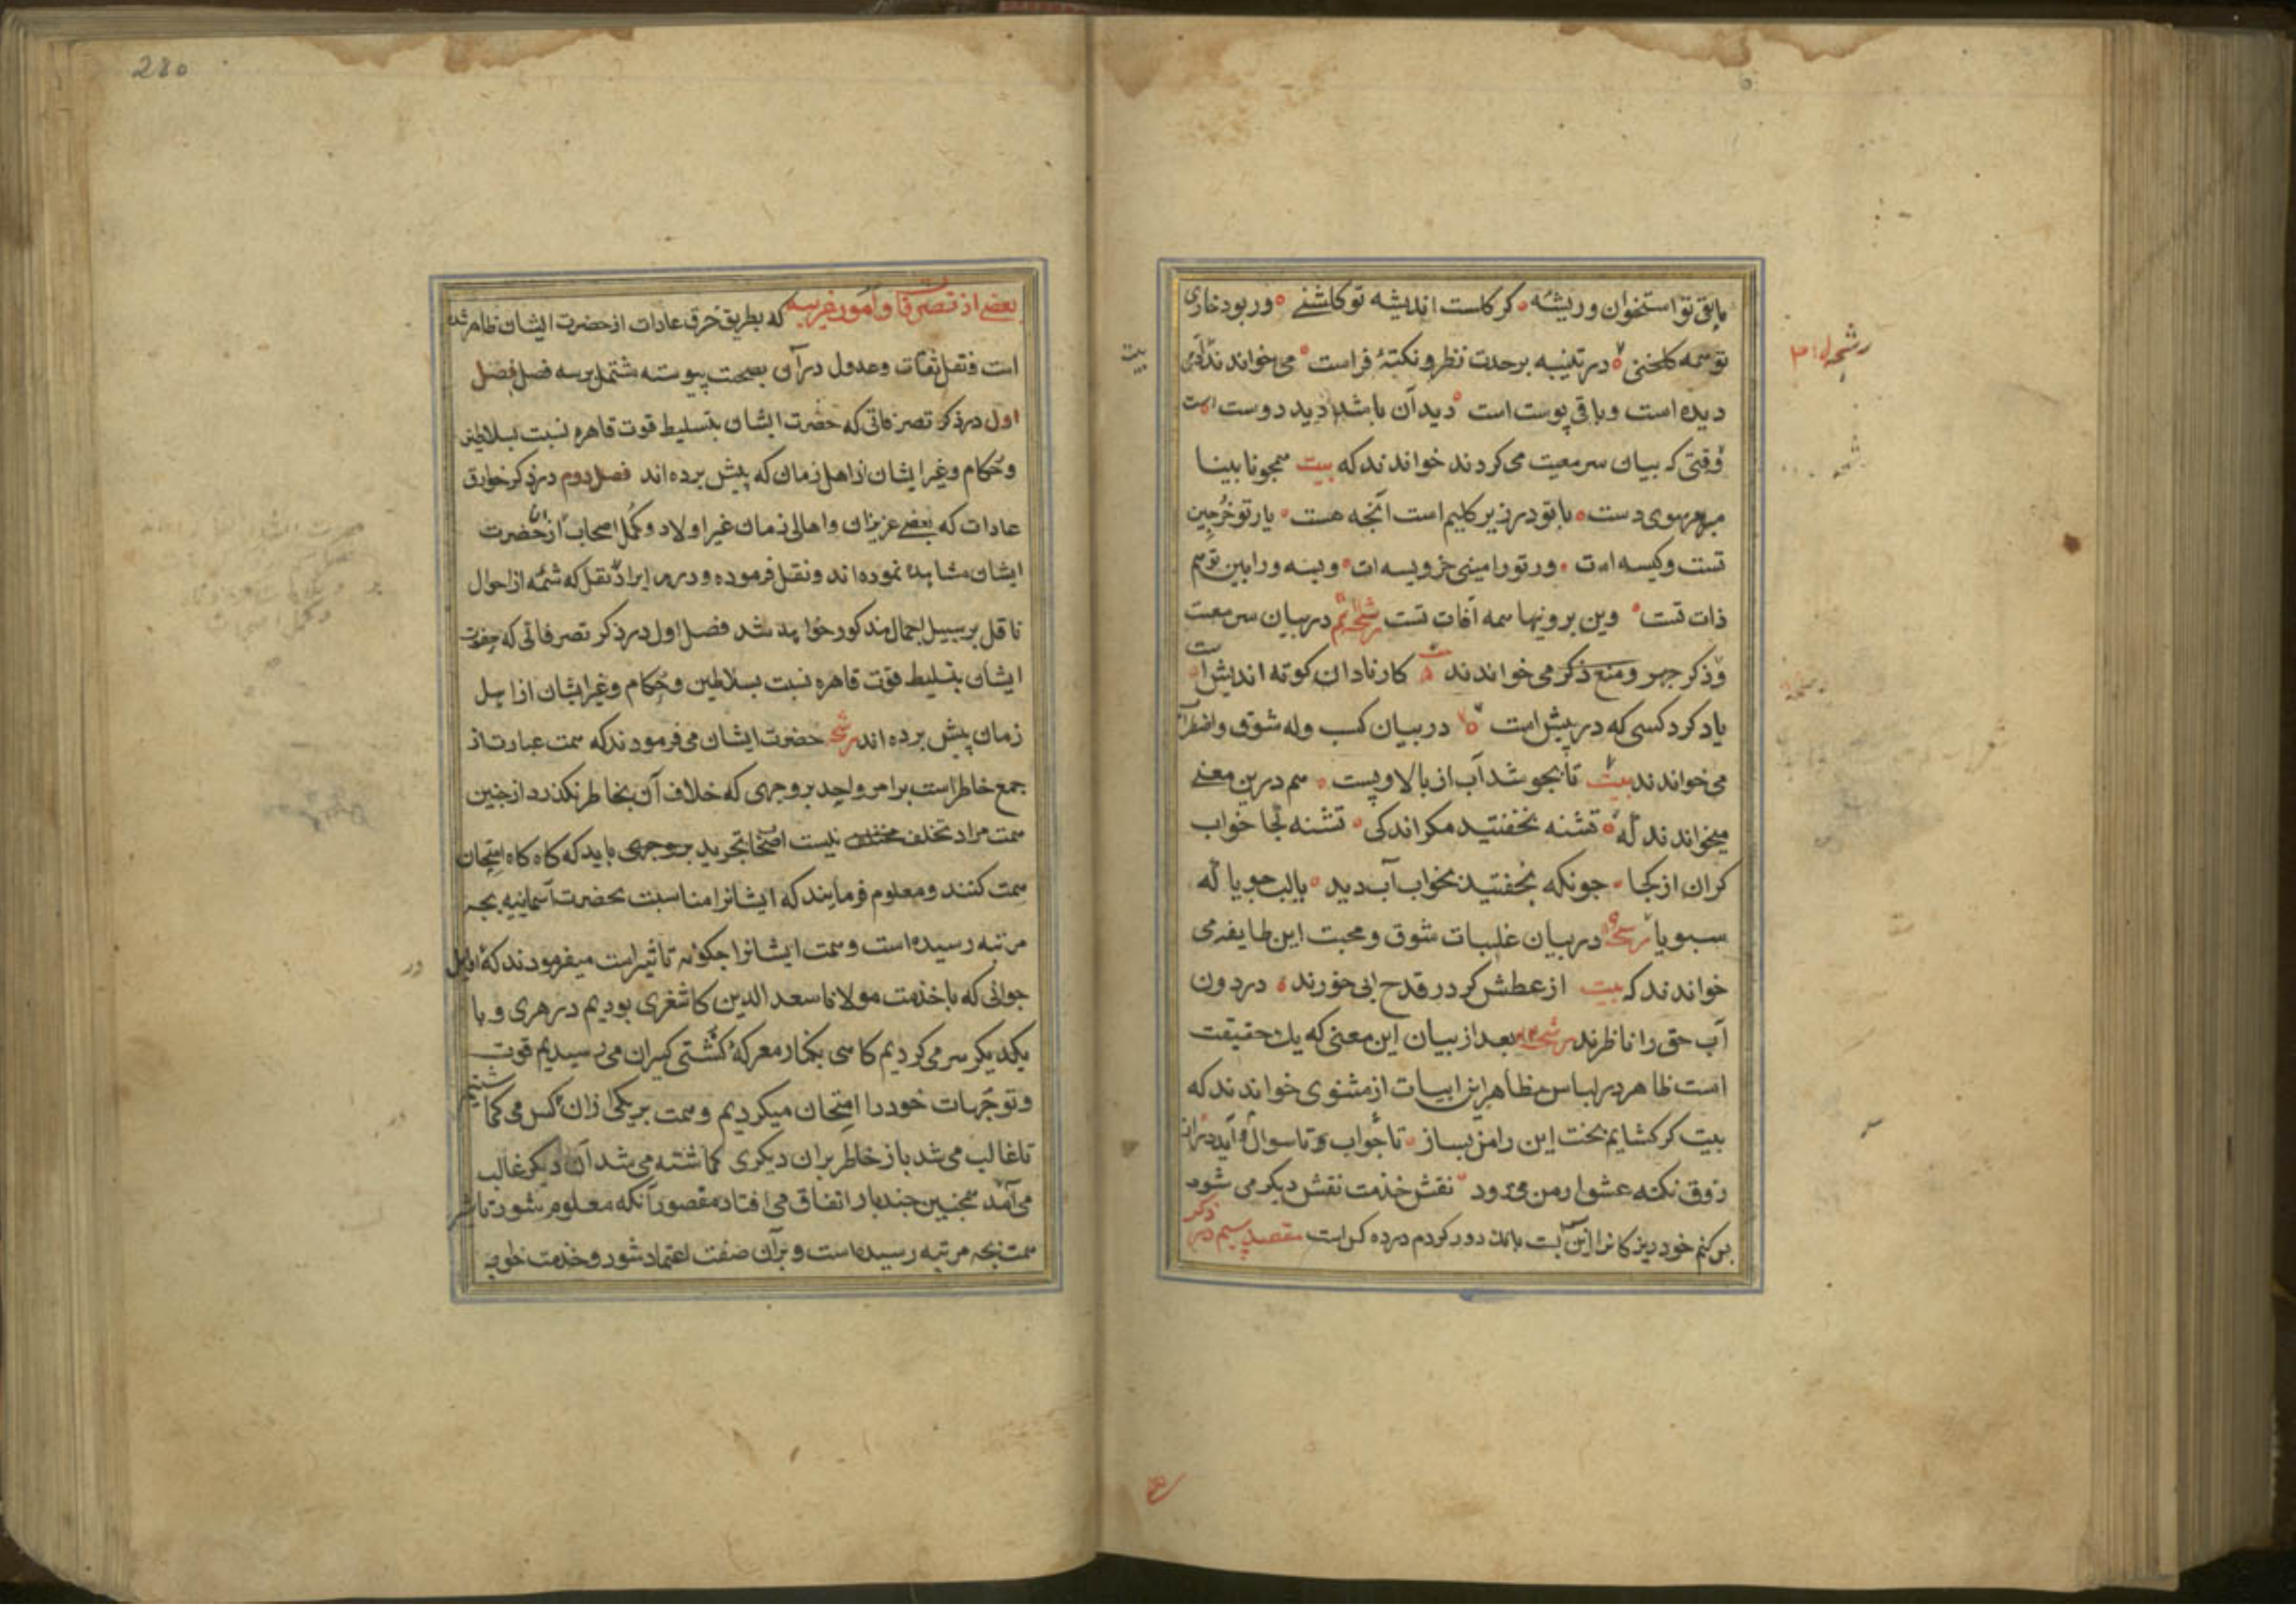 مابقی تو استخوان و ریشه کر کلست اندیشه تو کلشنے ور بود خاری
تو همه کلخنی در تنبیه بر حدت نظر و نکتهٔ فراست می خواندند آدمی
دیده است و باقی پوست است دید آن باشد دید دوست است
وقتی که بیان سر معیت می کردند خواندند که بیت همچو نابینا
مبر هر سوی دست با تو در زیر کلیم است آنچه هست یار تو خرجین
تست و کیسه ات ور تو رامینی جز ویسه ات ویسه و رامین تو هم
ذات تست وین برونیها همه آفات تست رشحه در بیان سر معیت
و ذکر جهر و منع ذکر می خواندند کار نادان کوته اندیش است
یاد کرد کسی که در پیش است در بیان کسب وله شوق و اضطراب
می خواندند بیت تا بجوشد آب از بالا و پست هم درین معنے
میخواندند له تشنه نخفتید مکر اندکی تشنه کجا خواب
کران از کجا جونکه بخفتید بخواب آب دید یا لب جو یا که
سبو یا رشحه در بیان غلبات شوق و محبت این طایفه می
خواندند که بیت از عطش کر در قدح ابی خورند در درون
آب حق را ناظرند رشحه بعد از بیان این معنی که یک حقیقت
است ظاهر در لباس مظاهر این ابیات از مثنوی خواندند که
بیت کر کشایم بحث این را من بساز تا سوال و تا جواب آید دراز
ذوق نکته عشق از من می رود نقش خدمت نقش دیکر می شود
بس کنم خود زیرکانرا این بس است بانک دو کردم در ده کس است مقصد سیم در ذکر
رشحه
بیت
280
بعضے از تصرفات و امور غریبه که بطریق خرق عادات از حضرت ایشان ظاهر شده
است و نقل ثقات و عدول در آن بصحت پیوسته مشتمل بر سه فصل فصل
اول در ذکر تصرفاتی که حضرت ایشان بتسلیط قوت قاهره نسبت بسلاطین
و حکام و غیر ایشان از اهل زمان که پیش برده اند فصل دوم در ذکر خوارق
عادات که بعضے عزیزان و اهالی زمان غیر اولاد و کمل اصحاب از آن حضرت
ایشان مشاهده نموده اند و نقل فرموده و در هر ایراد نقل که شمّه از احوال
ناقل بر سبیل اجمال مذکور خواهد شد فصل اول در ذکر تصرفاتی که حضرت
ایشان بتسلیط قوت قاهره نسبت بسلاطین و حکام و غیر ایشان از اهل
زمان پیش برده اند رشحه حضرت ایشان می فرمودند که همت عبارت از
جمع خاطر است بر امر واحد بر وجهی که خلاف آن بخاطر نکذرد از جنین
همت مراد تخلف نیست اصحاب تجرید بر وجهی باید که کاه کاه امتحان
همت کنند و معلوم فرمایند که ایشانرا مناسبت بحضرت اسمائیه بجه
مرتبه رسیده است و همت ایشانرا جکونه تاثیر است میفرمودند که اوایل
جوانی که با خدمت مولانا سعد الدین کاشغری بودیم در هری و با
یکدیکر سیر می کردیم کاهی بکنار معرکهٔ کشتی کیران می رسیدیم قوت
و توجهات خود را امتحان میکردیم و همت بر یکی از آن کس می کماشتیم
تا غالب می شد باز خاطر بر آن دیکری کماشته می شد آن دیکر غالب
می آمد همچنین جند بار اتفاق می افتاد مقصود آنکه معلوم شود تاثیر
همت بجه مرتبه رسیده است و بر آن صفت اعتماد شود و خدمت خواجه
در